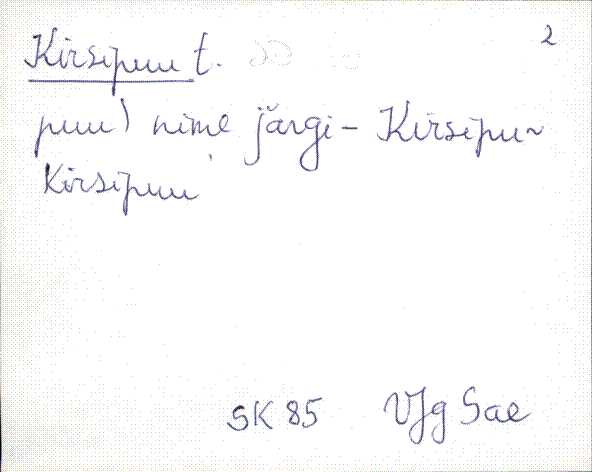 2
Kirsipuu t.
puu) nime järgi - Kirsipu ~
Kirsipuu
SK 85 VJg Sae